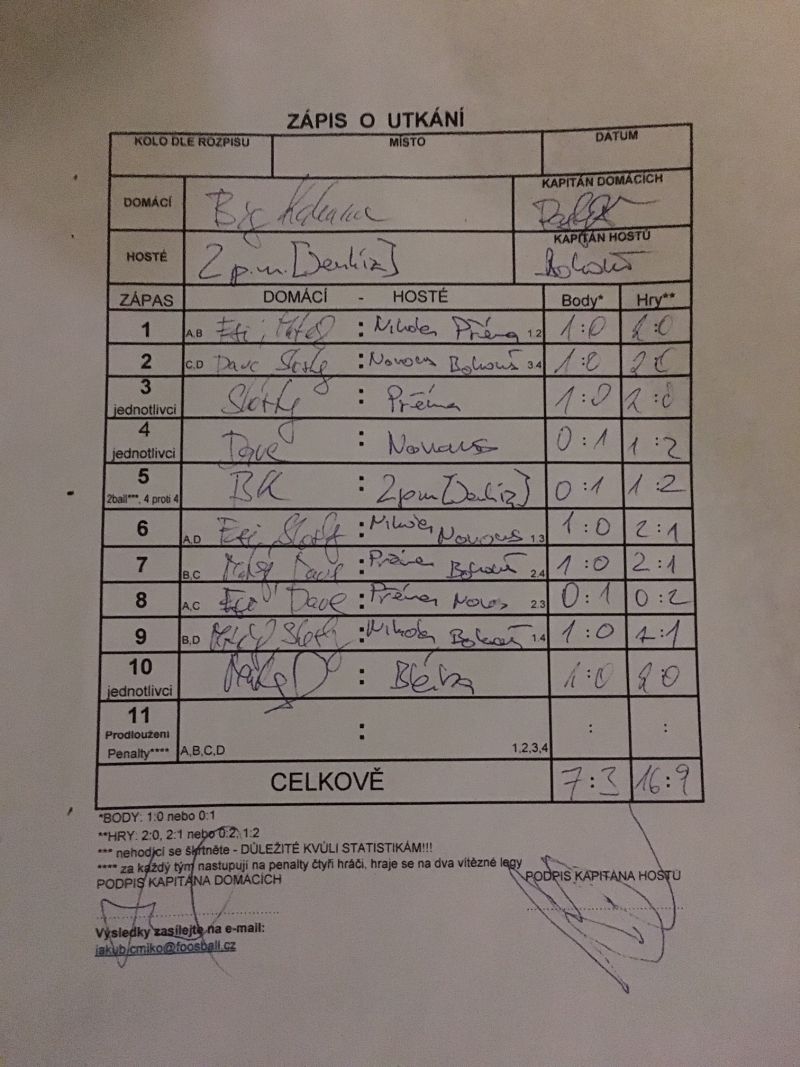 ZÁPIS O UTKÁNÍ
KOLO DLE ROZPISU MÍSTO DATUM
DOMÁCÍ Big KAPITÁN DOMÁCÍCH
HOSTÉ 2 p.m. KAPITÁN HOSTŮ Bohouš
ZÁPAS DOMÁCÍ - HOSTÉ Body* Hry**
1 A,B : Nikolas Přéma 1.2 1:0 2:0
2 C,D Dave : Novous Bohouš 3.4 1:0 2:0
3 jednotlivci : Přéma 1:0 2:0
4 jednotlivci Dave : Novous 0:1 1:2
5 2ball***, 4 proti 4 BK : 2pm 0:1 1:2
6 A,D : Nikolas Novous 1.3 1:0 2:1
7 B,C Dave : Přéma Bohouš 2.4 1:0 2:1
8 A,C Dave : Přéma 2.3 0:1 0:2
9 B,D : Nikolas Bohouš 1.4 1:0 2:1
10 jednotlivci : 1:0 2:0
11 Prodloužení Penalty**** A,B,C,D : 1,2,3,4 : :
CELKOVĚ 7:3 16:9
*BODY: 1:0 nebo 0:1
**HRY: 2:0, 2:1 nebo 0:2, 1:2
*** nehodící se škrtněte - DŮLEŽITÉ KVŮLI STATISTIKÁM!!!
**** za každý tým nastupují na penalty čtyři hráči, hraje se na dva vítězné legy
PODPIS KAPITÁNA DOMÁCÍCH PODPIS KAPITÁNA HOSTŮ
Výsledky zasílejte na e-mail:
jakub.cmiko@foosball.cz